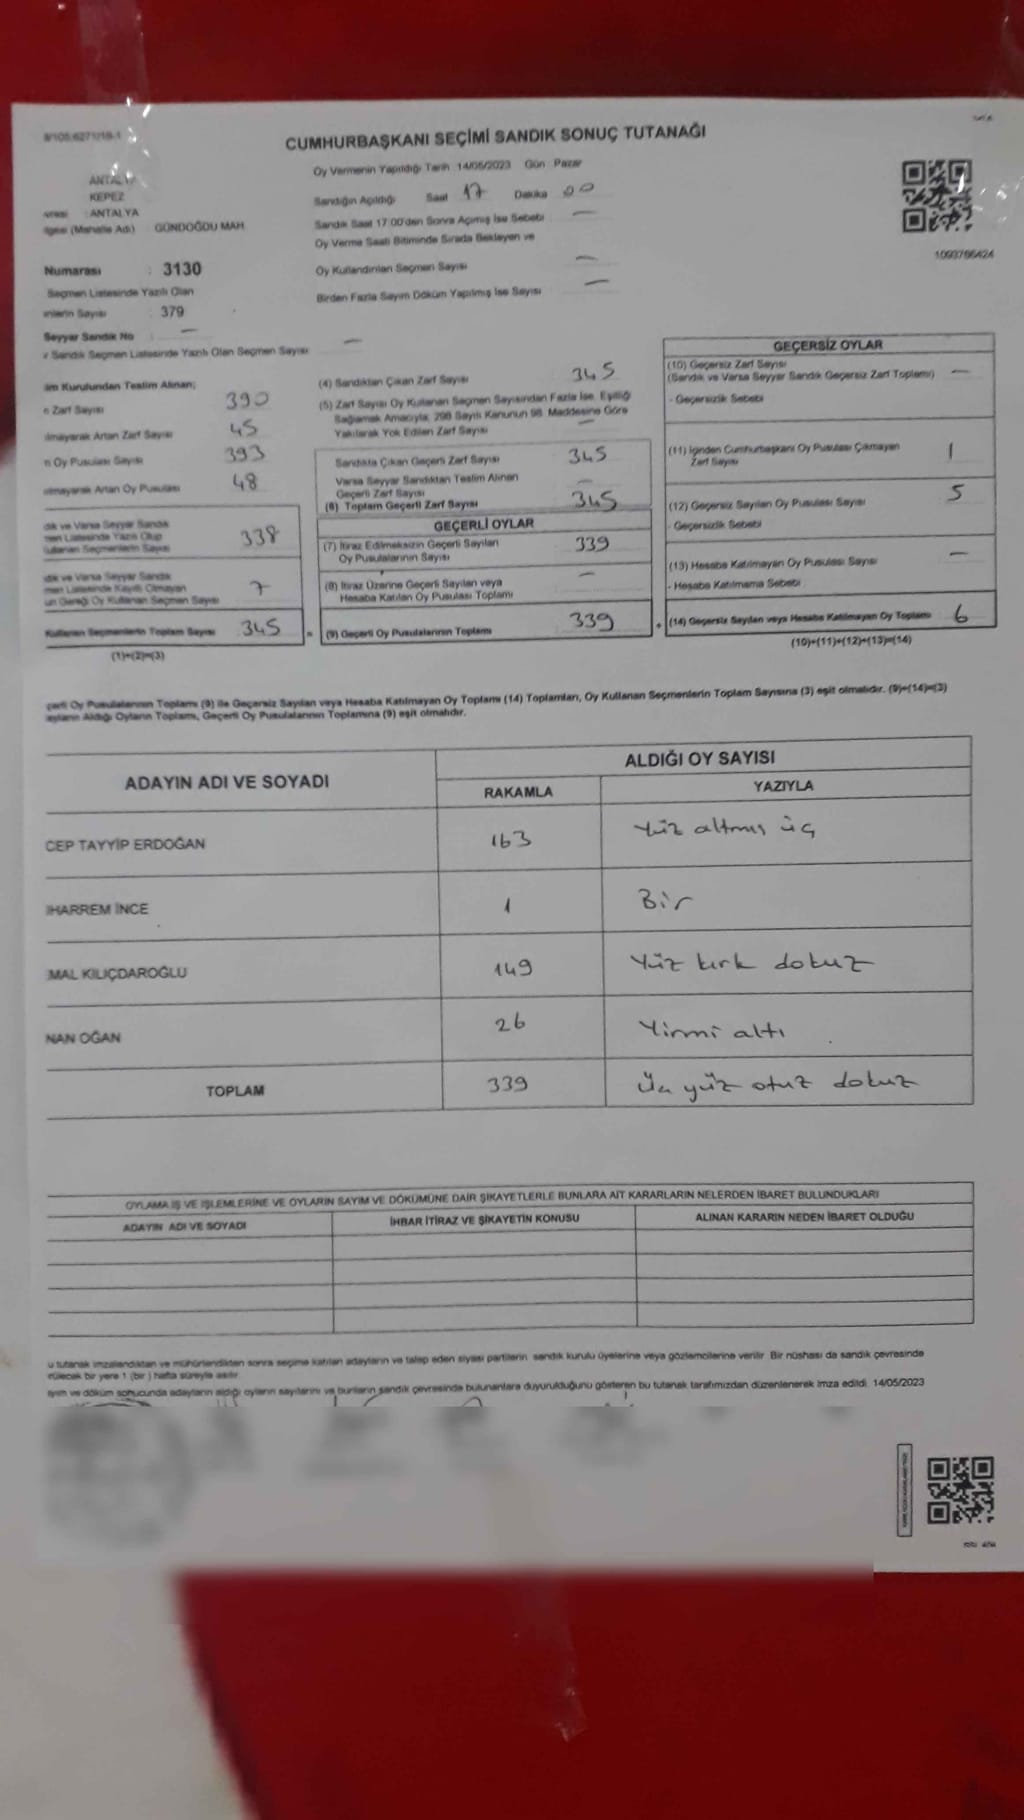 CUMHURBAŞKANI SEÇİMİ SANDIK SONUÇ TUTANAĞI
Oy Vermenin Yapıldığı Tarih 14/05/2023 Gün Pazar
ANTALYA
KEPEZ
: ANTALYA
(Mahalle Adı) GÜNDOĞDU MAH.
Sandığın Açıldığı Saat 17 Dakika 00
Sandık Saat 17:00'den Sonra Açılmış İse Sebebi —
Oy Verme Saati Bitiminde Sırada Bekleyen ve
Oy Kullandırılan Seçmen Sayısı —
Birden Fazla Sayım Döküm Yapılmış İse Sayısı —
1093766424
Numarası : 3130
Seçmen Listesinde Yazılı Olan
Sayısı : 379
Seyyar Sandık No —
Sandık Seçmen Listesinde Yazılı Olan Seçmen Sayısı —
Kurulundan Teslim Alınan;
Zarf Sayısı 390
Artan Zarf Sayısı 45
Oy Pusulası Sayısı 393
Artan Oy Pusulası 48
ve Varsa Seyyar Sandık
Listesinde Yazılı Olup
Seçmenlerin Sayısı 338
ve Varsa Seyyar Sandık
Listesinde Kayıtlı Olmayan
Gereği Oy Kullanan Seçmen Sayısı 7
Kullanan Seçmenlerin Toplam Sayısı 345
(1)+(2)=(3)
(4) Sandıktan Çıkan Zarf Sayısı 345
(5) Zarf Sayısı Oy Kullanan Seçmen Sayısından Fazla İse, Eşitliği
Sağlamak Amacıyla, 298 Sayılı Kanunun 98. Maddesine Göre
Yakılarak Yok Edilen Zarf Sayısı —
Sandıkta Çıkan Geçerli Zarf Sayısı 345
Varsa Seyyar Sandıktan Teslim Alınan
Geçerli Zarf Sayısı —
(6) Toplam Geçerli Zarf Sayısı 345
GEÇERLİ OYLAR
(7) İtiraz Edilmeksizin Geçerli Sayılan
Oy Pusulalarının Sayısı 339
(8) İtiraz Üzerine Geçerli Sayılan veya
Hesaba Katılan Oy Pusulası Toplamı —
= (9) Geçerli Oy Pusulalarının Toplamı 339
GEÇERSİZ OYLAR
(10) Geçersiz Zarf Sayısı
(Sandık ve Varsa Seyyar Sandık Geçersiz Zarf Toplamı) —
- Geçersizlik Sebebi
(11) İçinden Cumhurbaşkanı Oy Pusulası Çıkmayan
Zarf Sayısı 1
(12) Geçersiz Sayılan Oy Pusulası Sayısı 5
- Geçersizlik Sebebi
(13) Hesaba Katılmayan Oy Pusulası Sayısı —
- Hesaba Katılmama Sebebi
+ (14) Geçersiz Sayılan veya Hesaba Katılmayan Oy Toplamı 6
(10)+(11)+(12)+(13)=(14)
Oy Pusulalarının Toplamı (9) ile Geçersiz Sayılan veya Hesaba Katılmayan Oy Toplamı (14) Toplamları, Oy Kullanan Seçmenlerin Toplam Sayısına (3) eşit olmalıdır. (9)+(14)=(3)
Aldığı Oyların Toplamı, Geçerli Oy Pusulalarının Toplamına (9) eşit olmalıdır.
ADAYIN ADI VE SOYADI
ALDIĞI OY SAYISI
RAKAMLA YAZIYLA
CEP TAYYİP ERDOĞAN 163 Yüz altmış üç
HARREM İNCE 1 Bir
MAL KILIÇDAROĞLU 149 Yüz kırk dokuz
NAN OĞAN 26 Yirmi altı
TOPLAM 339 Üç yüz otuz dokuz
OYLAMA İŞ VE İŞLEMLERİNE VE OYLARIN SAYIM VE DÖKÜMÜNE DAİR ŞİKAYETLERLE BUNLARA AİT KARARLARIN NELERDEN İBARET BULUNDUKLARI
ADAYIN ADI VE SOYADI İHBAR İTİRAZ VE ŞİKAYETİN KONUSU ALINAN KARARIN NEDEN İBARET OLDUĞU
u tutanak imzalandıktan ve mühürlendikten sonra seçime katılan adayların ve talep eden siyasi partilerin sandık kurulu üyelerine veya gözlemcilerine verilir. Bir nüshası da sandık çevresinde
bir yere 1 (bir) hafta süreyle asılır.
ve döküm sonucunda adayların aldığı oyların sayılarını ve bunların sandık çevresinde bulunanlara duyurulduğunu gösteren bu tutanak tarafımızdan düzenlenerek imza edildi. 14/05/2023